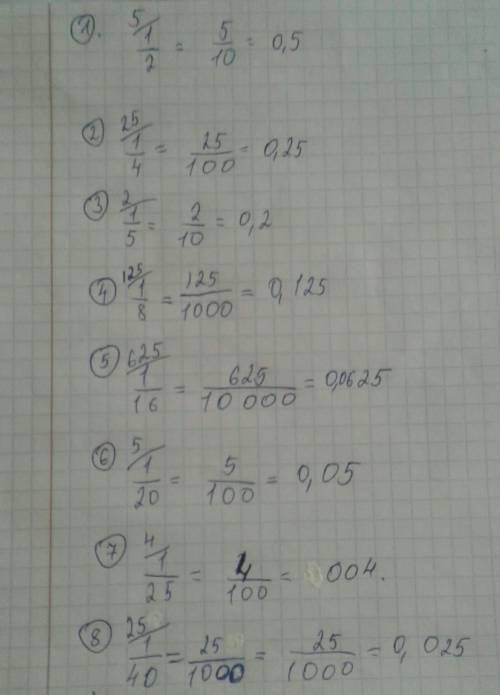 1. 5/ 1/2 = 5/10 = 0,5
2 25/ 1/4 = 25/100 = 0,25
3 2/ 1/5 = 2/10 = 0,2
4 125/ 1/8 = 125/1000 = 0,125
5 625/ 1/16 = 625/10 000 = 0,0625
6 5/ 1/20 = 5/100 = 0,05
7 4/ 1/25 = 4/100 = 004.
8 25/ 1/40 = 25/1000 = 25/1000 = 0,025